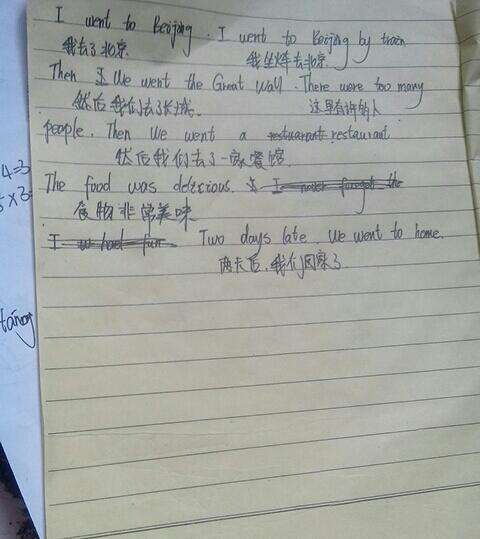 I went to Beijing. I went to Beijing by train
我去了北京. 我坐火车去北京.
Then I We went the Great Wall. There were too many
然后我们去了长城. 这里有许多人
people. Then we went a restuarant restaurant
然后我们去了一家餐馆
The food was delecious. I I never forget the
食物非常美味
I had fun Two days late. We went to home.
两天后,我们回家了
4=3
×3
tang